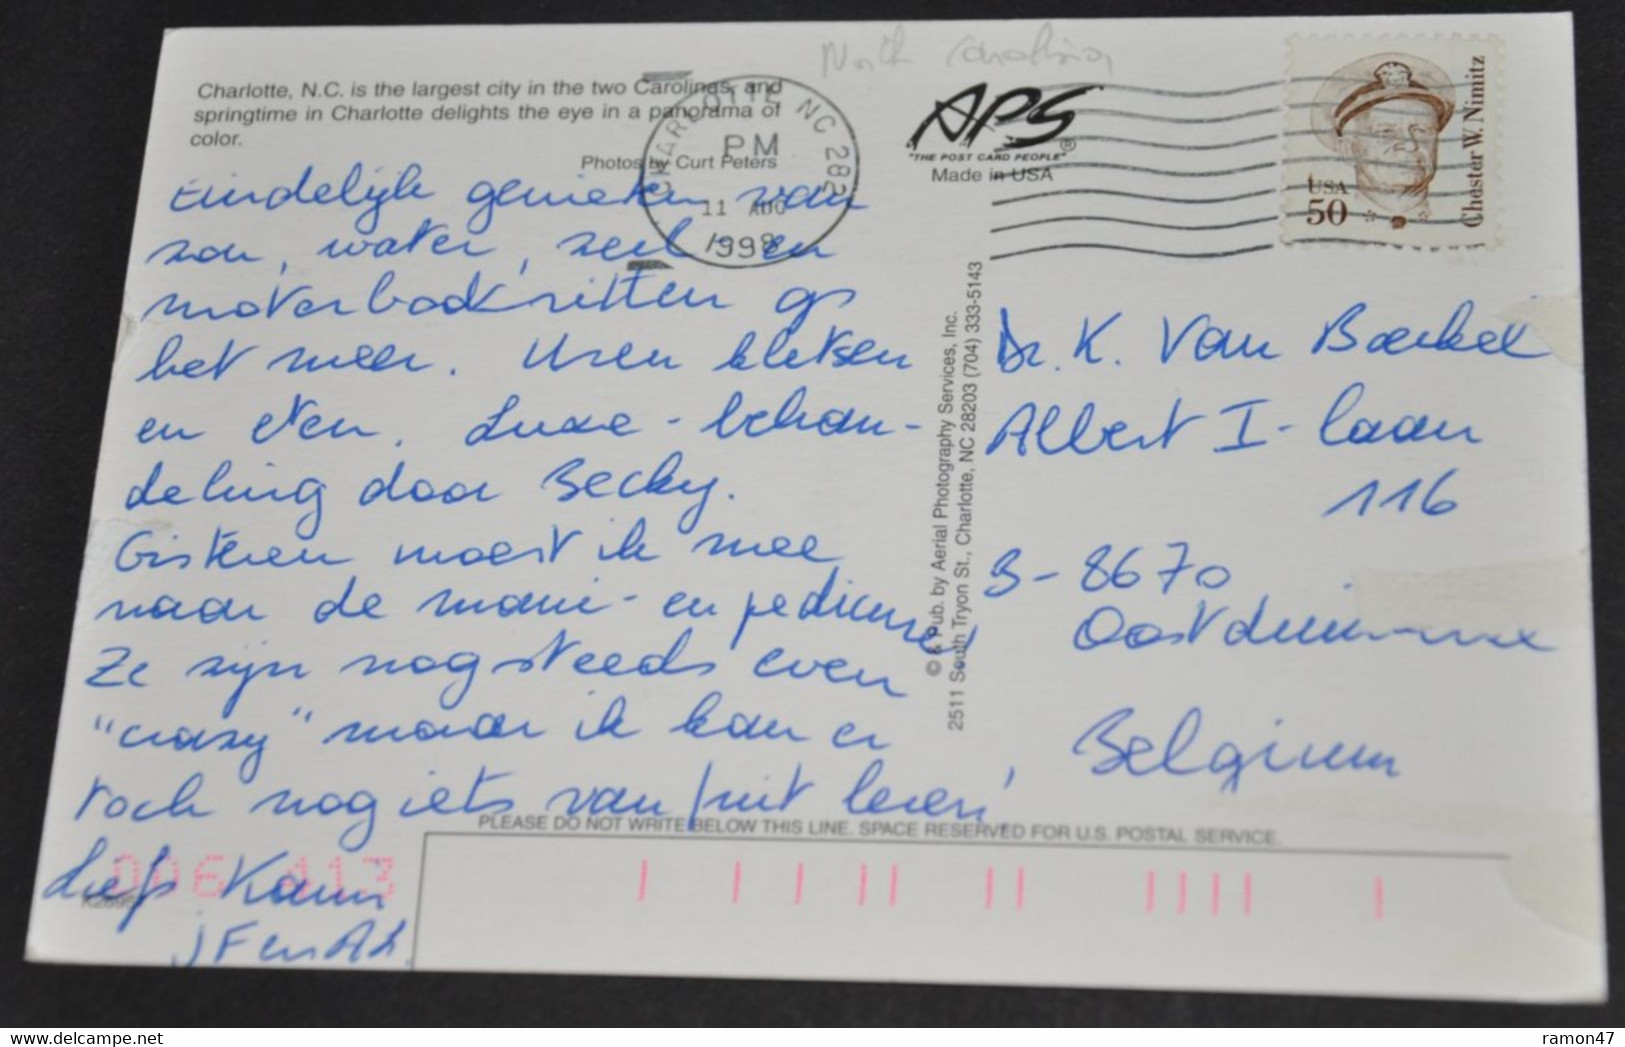 North Carolina
Charlotte, N.C. is the largest city in the two Carolinas, and
springtime in Charlotte delights the eye in a panorama of
color.
Photos by Curt Peters
CHARLOTTE NC 282
PM
11 AUG
1998
APS
"THE POST CARD PEOPLE" ®
Made in USA
USA
50
Chester W. Nimitz
Eindelijk genieten van
zon, water, zeil en
motorbootritten op
het meer. Uren kletsen
en eten. Luxe-behan-
deling door Becky.
Gisteren moest ik mee
naar de mani- en pedicure,
Ze zijn nog steeds even
"crazy" maar ik kan er
toch nog iets van /uit leren!
Liefs Karin
© & Pub. by Aerial Photography Services, Inc.
2511 South Tryon St., Charlotte, NC 28203 (704) 333-5143
Dr. K. Van Boeckel
Albert I-laan
116
B-8670
Oostduinkerke
Belgium
PLEASE DO NOT WRITE BELOW THIS LINE. SPACE RESERVED FOR U.S. POSTAL SERVICE.
ramon47